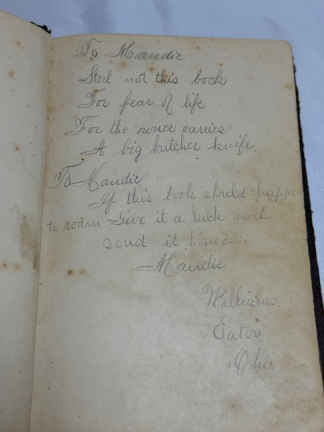 To Maudie
Steel not this book
For fear of life
For the owner carries
A big butcher knife.
To Maudie
If this book should happen
to roam Give it a kick and
send it home.
Maudie
Williams
Eaton
Ohio